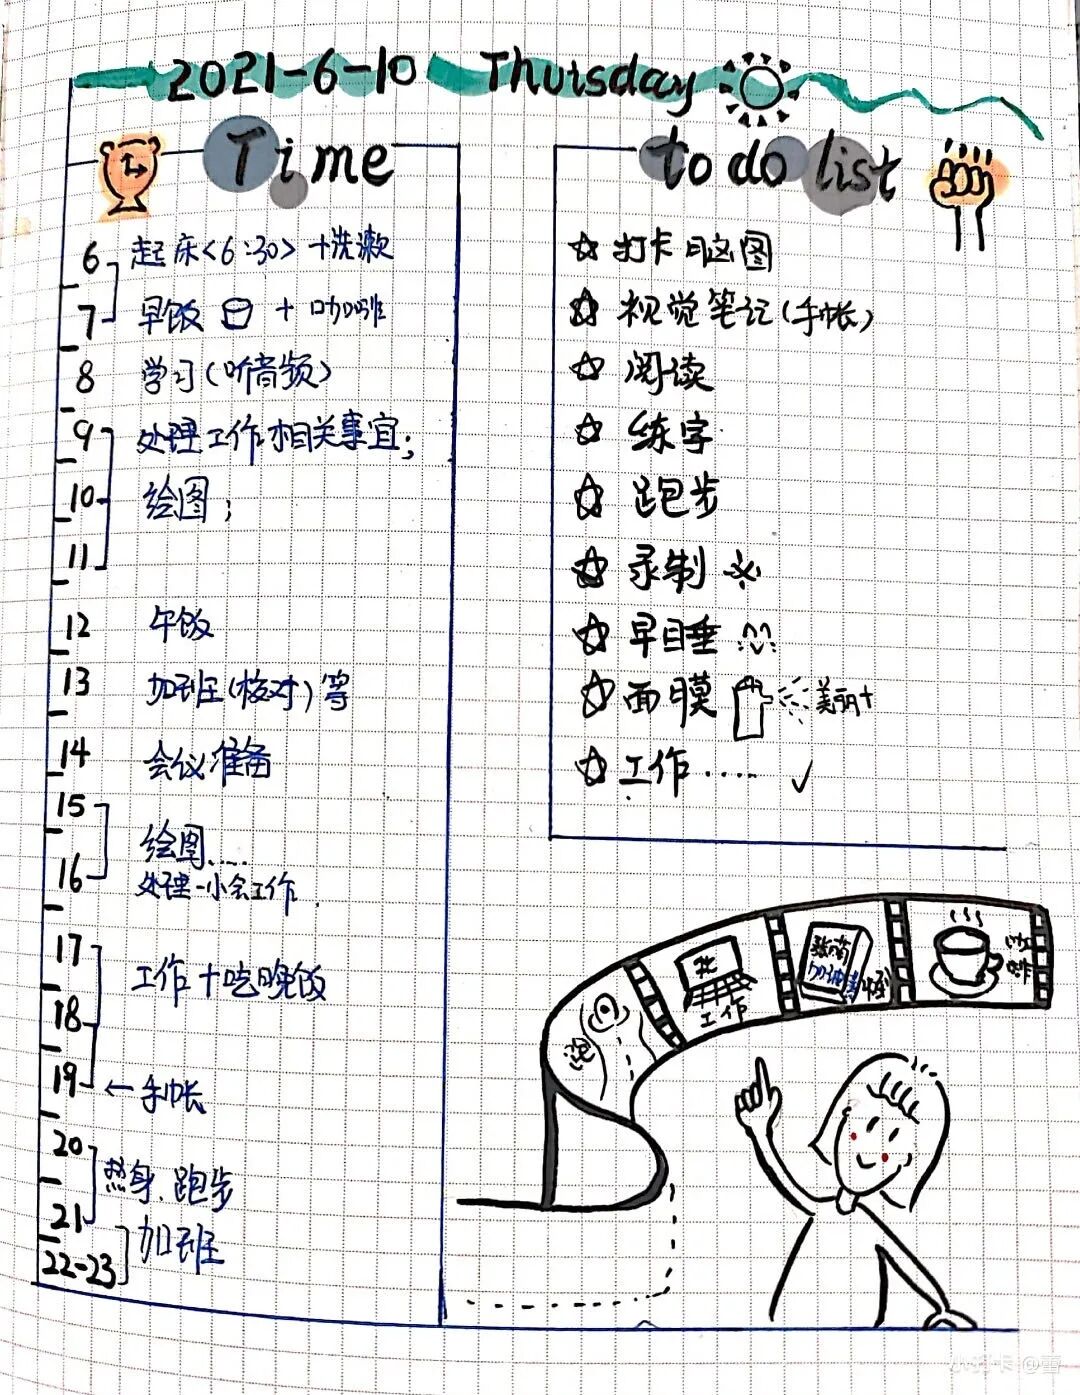 2021-6-10 Thuisday
Time
6 起床<6:30> +洗漱
7 早饭 + 咖啡
8 学习(听音频)
9 处理工作相关事宜;
10 绘图;
11
12 午饭
13 加班(核对)等
14 会议准备
15
绘图....
16 处理一小会工作.
17
工作+吃晚饭
18
19 ← 手帐
20
热身、跑步
21
加班
22-23
to do list
☆ 打卡脑图
☆ 视觉笔记(手帐)
☆ 阅读
☆ 练字
☆ 跑步
☆ 录制
☆ 早目垂
☆ 面膜 美丽+
☆ 工作..... ✓
工作
咖啡
小打卡 @雷